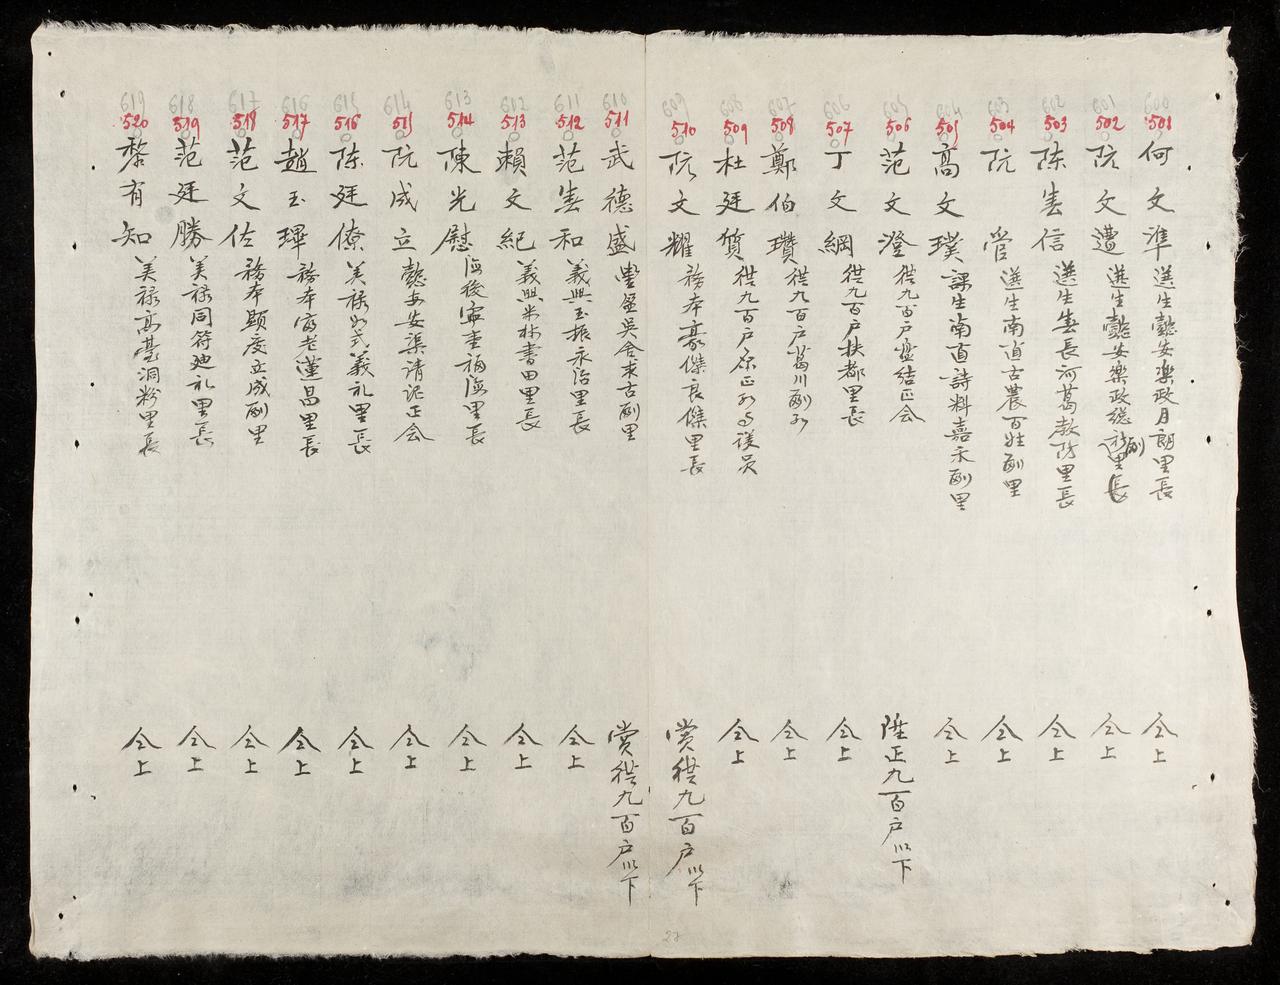 600 501 何文準 選生懿安樂政月朗里長 仝上
601 502 阮文遭 選生懿安樂政總 里長 仝上
602 503 陈春信 選生春長河葛教防里長 仝上
603 504 阮管 選生南直古農百姓副里 仝上
604 505 高文璞 課生南直詩料嘉禾副里 仝上
605 506 范文澄 從九百户 結正会 陞正九百户以下
606 507 丁文綱 從九百户扶都里長 仝上
607 508 鄭伯瓚 從九百户葛川副 仝上
608 509 杜廷質 從九百户 仝上
609 510 阮文耀 務本豪傑良傑里長 賞從九百户以下
610 511 武德盛 豐盈吳舍求古副里 賞從九百户以下
611 512 范春和 義興玉振永治里長 仝上
602 513 賴文紀 義興米林書田里長 仝上
613 514 陳光慰 海後寧查福海里長 仝上
614 515 阮成立 懿安安渠請 正会 仝上
615 516 陈廷僚 美禄如式義礼里長 仝上
616 517 趙玉琿 務本富老蓮昌里長 仝上
617 518 范文佐 務本顯度立成副里 仝上
618 519 范廷勝 美禄同符 礼里長 仝上
619 520 黎有知 美禄高臺洞粉里長 仝上
27